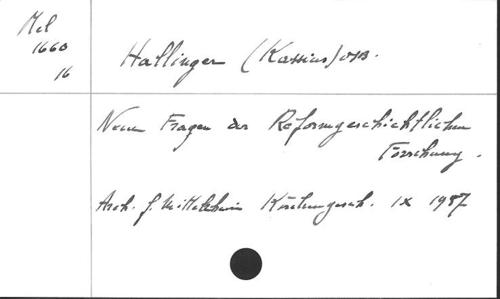 Mel
1660
16
Hallinger (Kassius) OSB.
Neue Fragen der Reformgeschichtlichen
Forschung.
Arch. f. Mittelrhein Kirchengesch. IX 1957